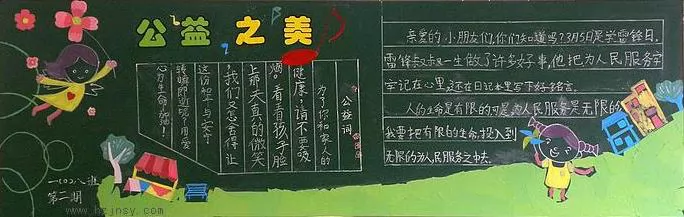 公益之美
公益词
为了你和家人的
健康,请不要吸
烟。看看孩子脸
上那天真的微笑
,我们又怎舍得让
这份和平与安宁
转瞬即逝呢?用爱
心为生命加油!
亲爱的小朋友们,你们知道吗?3月5日是学雷锋日。
雷锋叔叔一生做了许多好事,他把为人民服务牢
牢记在心里,还在日记本里写下好名言。
人的生命是有限的可是,为人民服务是无限的,
我要把有限的生命,投入到
无限的为人民服务之中去。
一(〇)八班
第二期
www.hzjnsy.com